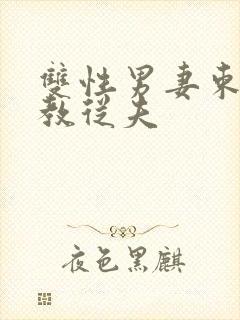 雙性男妻柬
教從夫
夜色黑麒